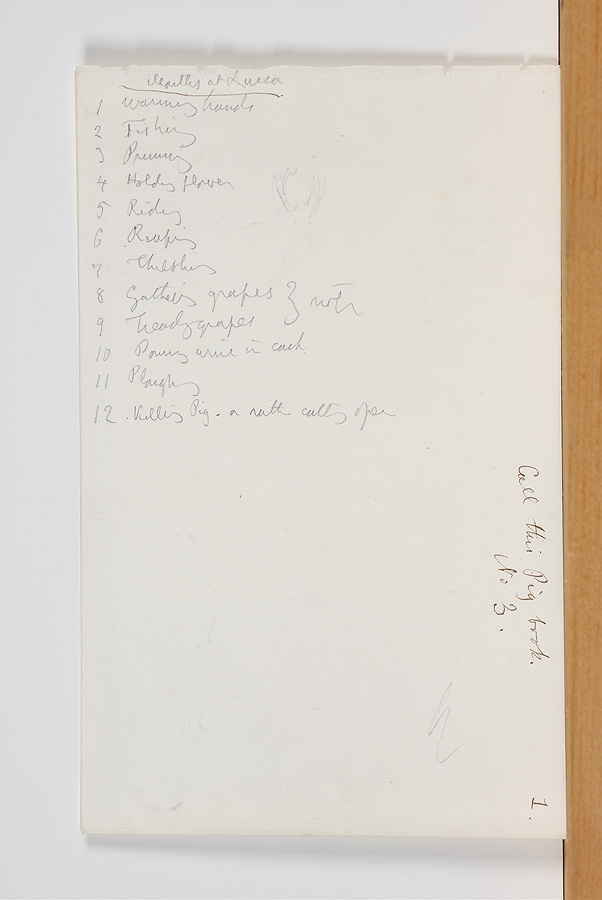 Months at Lucca
1 Warming hands
2 Fishing
3 Pruning
4 Holding flower
5 Riding
6 Reaping
7 Threshing
8 Gathering grapes } note
9 Treading grapes
10 Pouring wine in cask
11 Ploughing
12. Killing Pig - or rather cutting open
Call this Pig book.
No 3.
1.